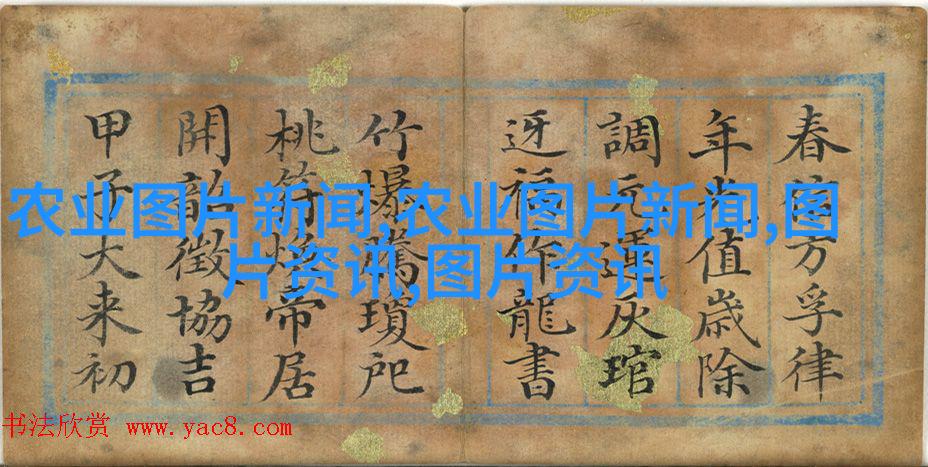 春方孚律
年光值歳除
調元運灰琯
迓福作龍書
竹爆騰瓊
桃符煥帝居
開韶徵協吉
甲子大来初
农业图片新闻,农业图片新闻,图
片资讯,图片资讯
书法欣赏 www.yac8.com